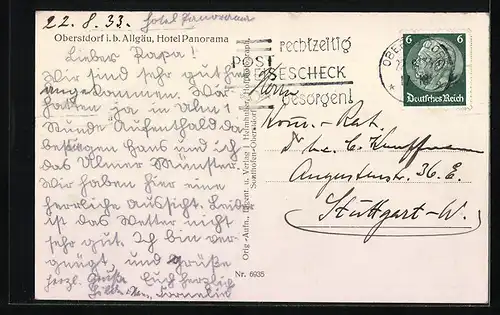 22.8.33. Hotel Panorama
Oberstdorf i. b. Allgäu, Hotel Panorama
Lieber Papa!
Wir sind sehr gut hier
angekommen. Wir
hatten ja in Ulm 1
Stunde Aufenthalt da
bestiegen Hans und ich
das Ulmer Münster.
Wir haben hier eine
herrliche Aussicht. Leider
ist das Wetter nicht
sehr gut. Ich bin ver-
gnügt und Grüße
herzl. Euch herzlich
Cornelia
Nr. 6935
Orig.-Aufn., Eigent. u. Verlag
Sonthofen-Oberstdorf
rechtzeitig
POST
REISESCHECK
besorgen!
OBERSTDORF
6 6
Deutsches Reich
Herrn
Kom.-Rat
Dr. h.c. C. Kauffmann
Augustenstr. 36.E.
Stuttgart-W.